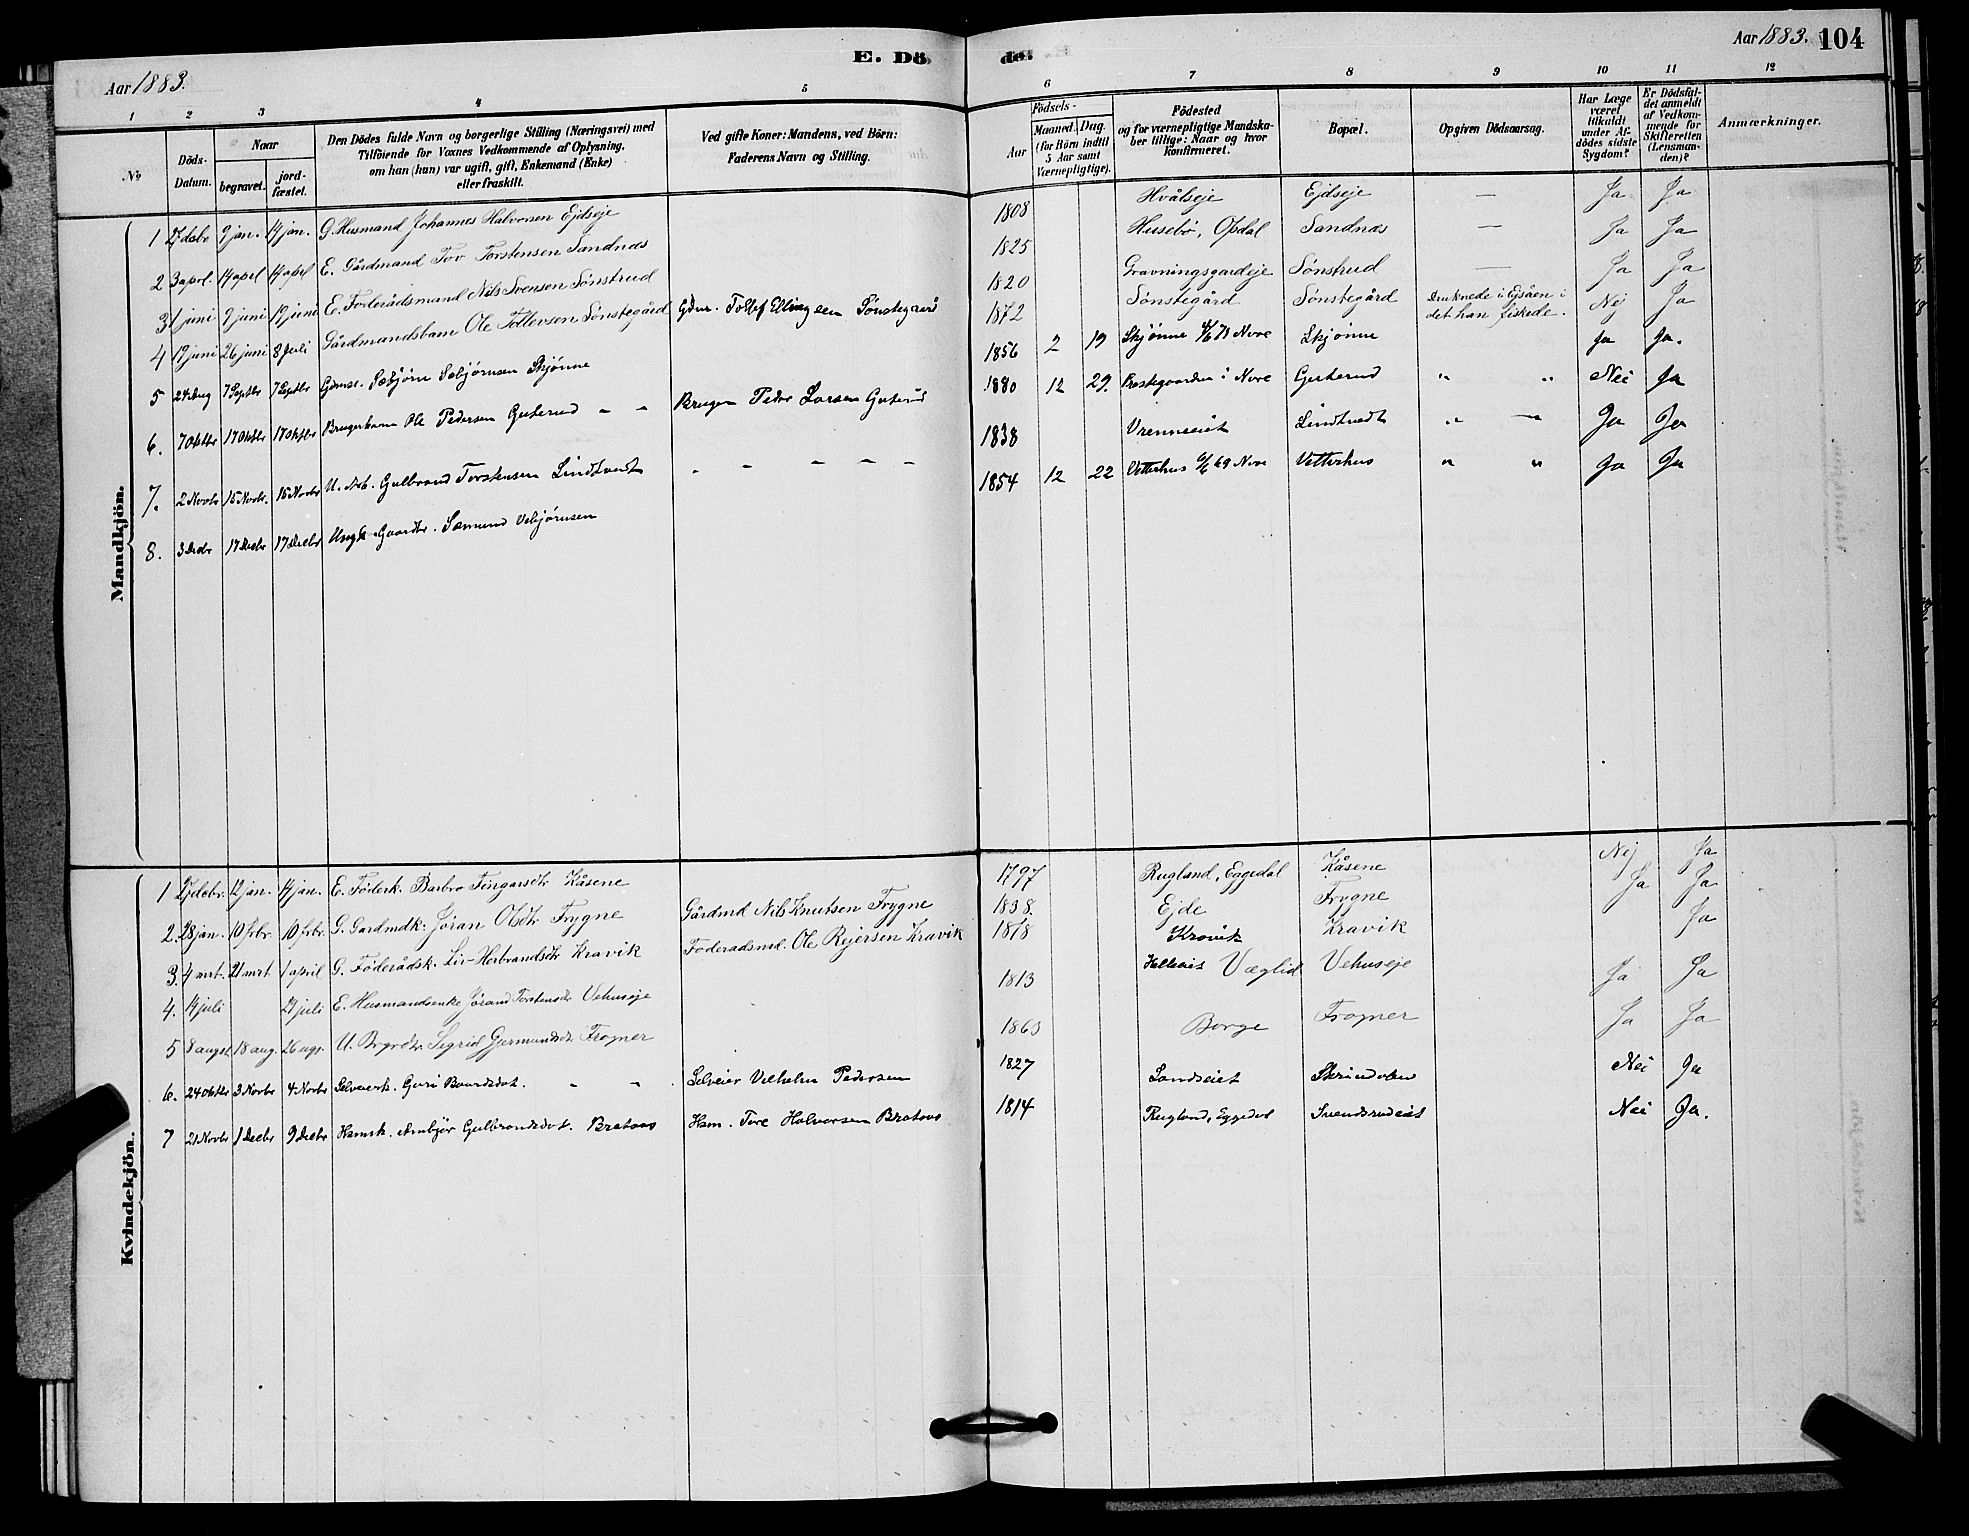 Aar 1883. E. Dö de. Aar 1883. 104
1 2 3 4 5 6 7 8 9 10 11 12
No
Döds-Datum.
Naar
begravet.
jord-fæstet.
Den Dödes fulde Navn og borgerlige Stilling (Næringsvei) med
Tilföiende for Voxnes Vedkommende af Oplysning,
om han (hun) var ugift, gift, Enkemand (Enke)
eller fraskilt.
Ved gifte Koner: Mandens, ved Börn:
Faderens Navn og Stilling.
Födsels-
Aar
Maaned. Dag.
(for Börn indtil
5 Aar samt
Værnepligtige).
Födested
og for værnepligtige Mandska-
ber tillige: Naar og hvor
konfirmeret.
Bopæl.
Opgiven Dödsaarsag.
Har Læge
været
tilkaldt
under Af-
dödes sidste
Sygdom?
Er Dödsfal-
det anmeldt
af Vedkom-
mende for
Skifteretten
(Lensman-
den)?
Anmærkninger.
Mandkjön.
1 27 debr 9 jan. 14 jan. G. Husmand Johannes Halvorsen Ejdseje 1808 Hvålseje Ejdseje — Ja Ja
2 3 aprl. 14 aprl 14 aprl E. Gårdmand Tov Torstensen Sandnæs 1825 Husebø, Opdal Sandnæs — Ja Ja
3 1 juni 9 juni 19 juni E. Føderådsmand Nils Svensen Sønstrud 1820 Gravningsgardeje Sønstrud — Ja Ja
4 19 juni 26 juni 8 Juli Gårdmandsbarn Ole Tollevsen Sønstegård Gdm. Tollef Ellingsen Sønstegaard 1872 Sønstegård Sønstegård Druknede i Ejsåen i det han fiskede. Nej Ja
5 24 Aug 7 Septbr 7 Septbr Gdmsr. Sæbjørn Sæbjørnsen Skjønne 1856 2 19 Skjønne 4/6 71 Nore Skjønne Ja Ja.
6. 7 Oktbr 17 Oktbr 17 Oktbr Brugerbarn Ole Pedersen Guterud - - Bruger Peder Larsen Guterud 1880 12 29. Præstegaarden i Nore Guterud " " Nei Ja
7. 2 Novbr 15 Novbr. 15 Novbr U. Arb. Gulbrand Torstensen Lindtvedt - - - - - 1838 Vrenneeiet Lindtvedt " — Ja Ja
8. 3 Decbr 17 Decbr 17 Decbr Ungk. Gaardbr. Sæmund Vebjørnsen 1854 12 22 Vetterhus 69 Nore Vetterhus " " Ja Ja
Kvindekjön.
1 27 debr. 12 jan. 14 jan. E. Føderk. Barbro Fingarsdtr Kåsene 1797 Rugland, Eggedal Kåsene Nej Ja
2. 28 jan. 10 frbr. 10 frbr. G. Gardmdk. Jøran Olsdtr Frygne Gårdmd Nils Knutsen Frygne 1838. Ejde Frygne Ja Ja
3. 4 mrt. 21 mrt 1 april G. Føderådsk. Liv Herbrandsdtr Kravik Foderadsmd. Ole Rejersen Kravik 1818 Kravik Kravik Ja
4. 14 juli 29 juli E. Husmandsenke Jørand Torstensdtr Vehuseje 1813 Væglid Vehuseje Ja Ja
5 8 augst 18 aug. 26 ags. U. Brgrdtr. Sigrid Gjermundsdtr Frogner 1863 Borge Frogner Ja Ja
6. 24 Oktbr 3 Novbr 4 Novbr Selveierk. Guri Baardsdot. - - Selveier Vilhelm Pedersen 1827 Landseiet Skrindolen Nei Ja
7 21 Novbr 1 Decbr 9 Decbr Hamsk. Ambjør Gulbrandsdot. Brataas Ham. Tore Halvorsen Brataas 1814 Rugland, Eggedal Svendsrudeiet Nei Ja.